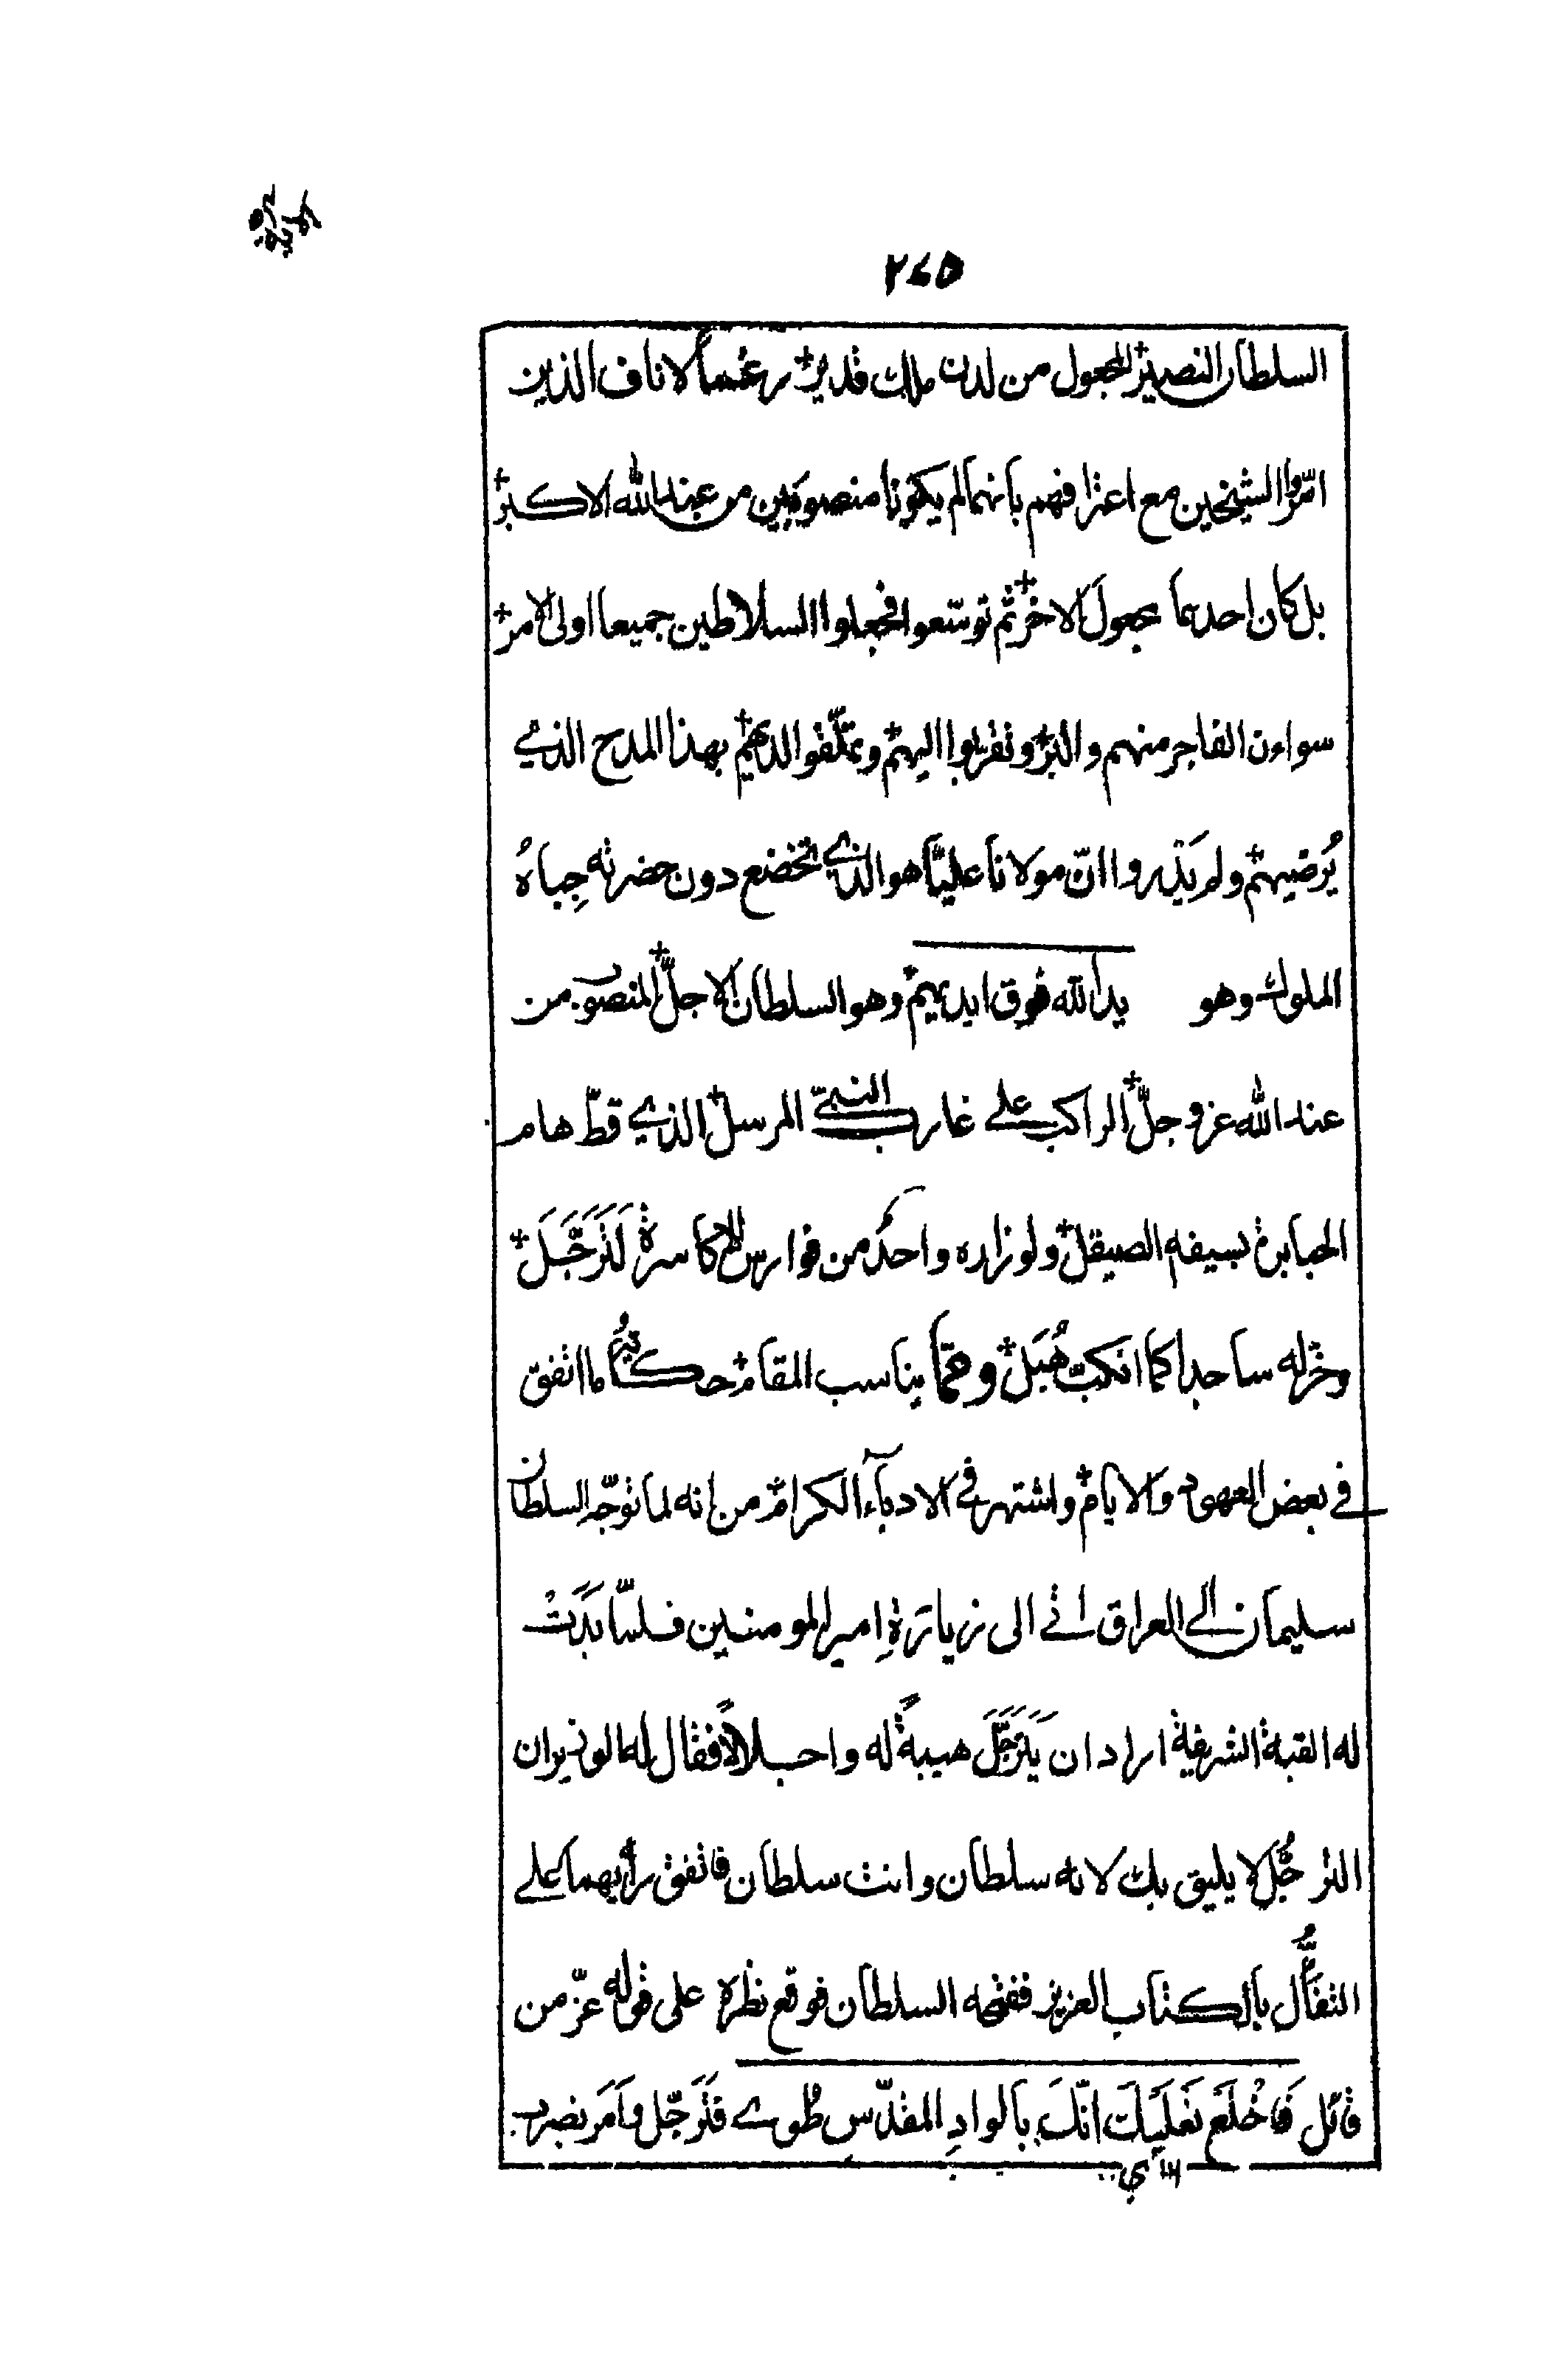 ٢٤٥
السلطان النصير المجعول من لدن ملك قدير رغما لاناف الذين
امّروا الشيخين مع اعترافهم بانهما لم يكونا منصوبين من عند الله الاكبر
بل كان احدهما مجعول الاخر ثم توسّعوا فجعلوا السلاطين جميعا اولى الامر
سواءن الفاجر منهم والبر وتقربوا اليهم وتملّقوا لديهم بهذا المدح الذي
يُرضيهم ولم يَدروا انّ مولانا عليّا هو الذي تخضع دون حضرته جِباهُ
الملوك وهو يد الله فوق ايديهم وهو السلطان الاجلّ المنصوب من
عند الله عز و جلّ الراكب على غارب النبيّ المرسل الذي قطّ هام
الجبابرة بسيفه الصيقل ولو زاره واحدٌ من فوارس الاكاسرة لَتَرَجَّلَ
وخرّ له ساجدا كما انكبّ هُبَل وممّا يناسب المقام حكايةُ ما اتفق
في بعض العهود والايام واشتهر في الادبآء الكرام من انه لما توجّه السلطان
سليمان الى العراق اتى الى زيارةِ امير المومنين فلمّا بَدَتْ
له القبة الشريفة اراد ان يَتَرَجَّلَ هيبةً له واجلالاً فقال له الوزير ان
الترجُّل لا يليق بك لانه سلطان وانت سلطان فاتفق رأيهما على
التفأُّل بالكتاب العزيز ففتحه السلطان فوقع نظره على قوله عزّ من
قائل فَاخْلَع نَعلَيكَ انّكَ بالوادِ المقدّس طُوى فتَرَجّل وأمَر بضرب